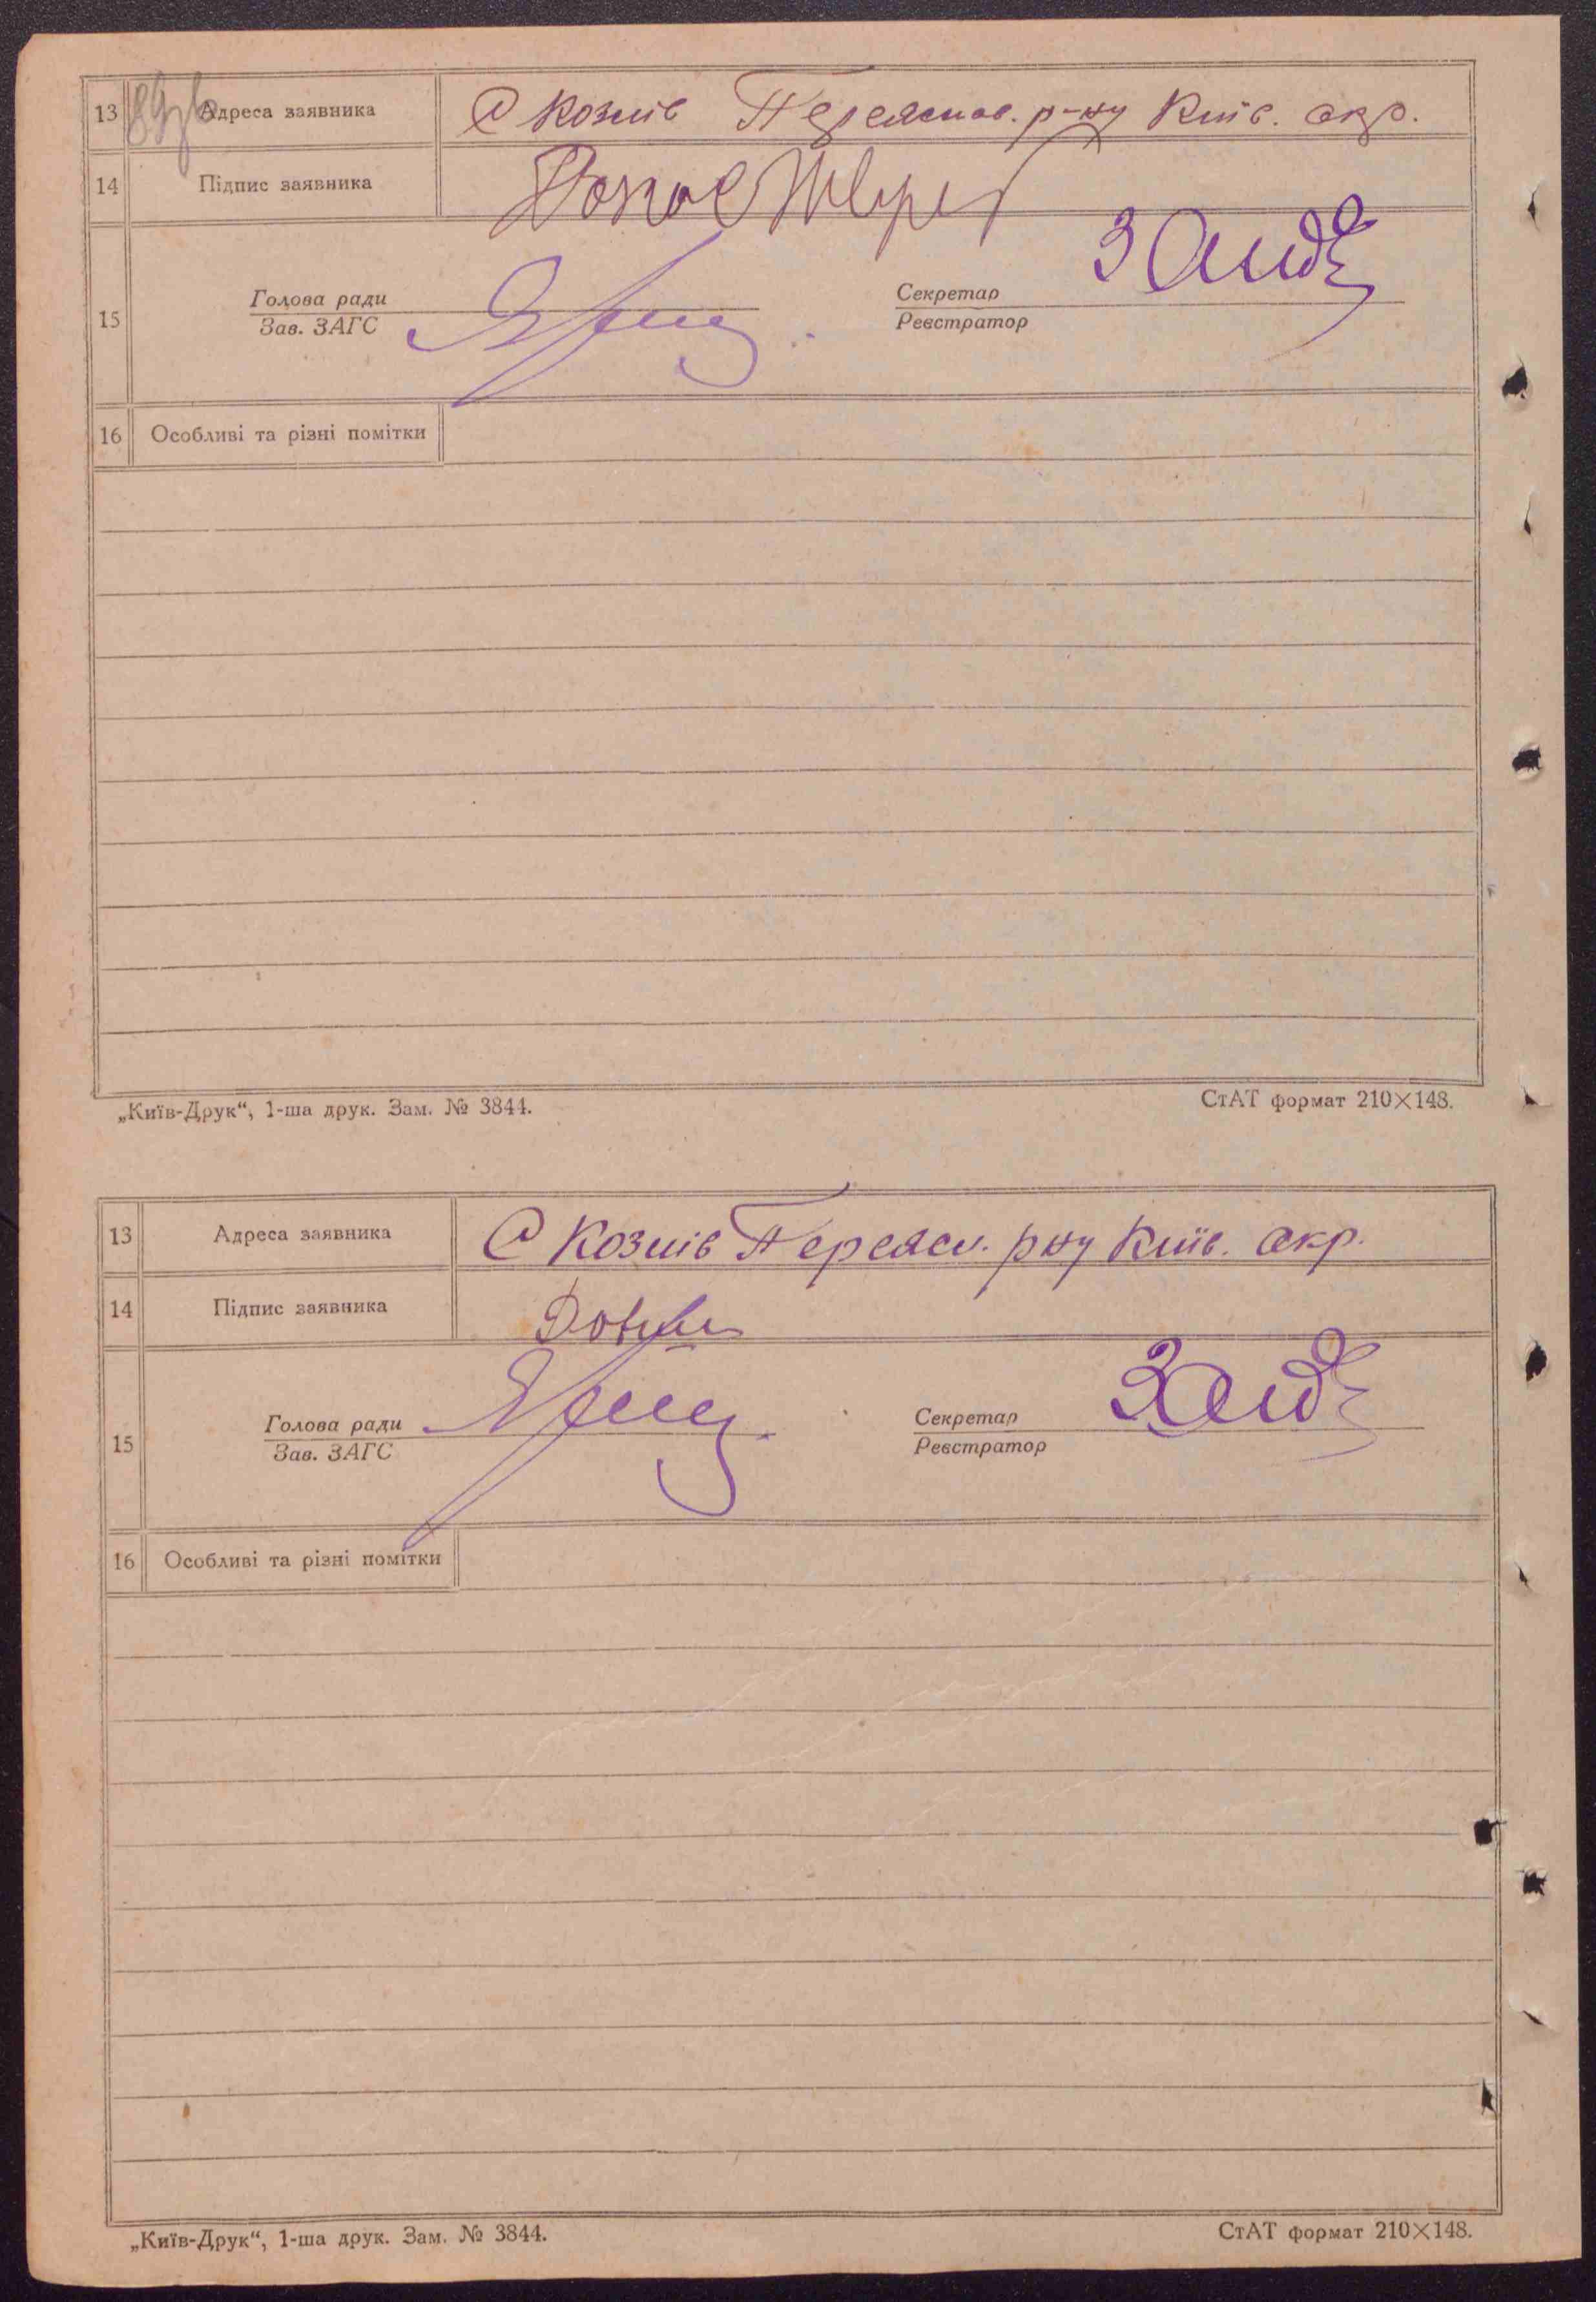 13 89зв Адреса заявника С Козлів Переяслав. р-ну Київ. окр.
14 Підпис заявника
15 Голова ради Секретар
Зав. ЗАГС Реєстратор
16 Особливі та різні помітки
„Київ-Друк“, 1-ша друк. Зам. № 3844. СтАТ формат 210×148.
13 Адреса заявника С Козлів Переясл. р ну Київ. окр.
14 Підпис заявника
15 Голова ради Секретар
Зав. ЗАГС Реєстратор
16 Особливі та різні помітки
„Київ-Друк“, 1-ша друк. Зам. № 3844. СтАТ формат 210×148.